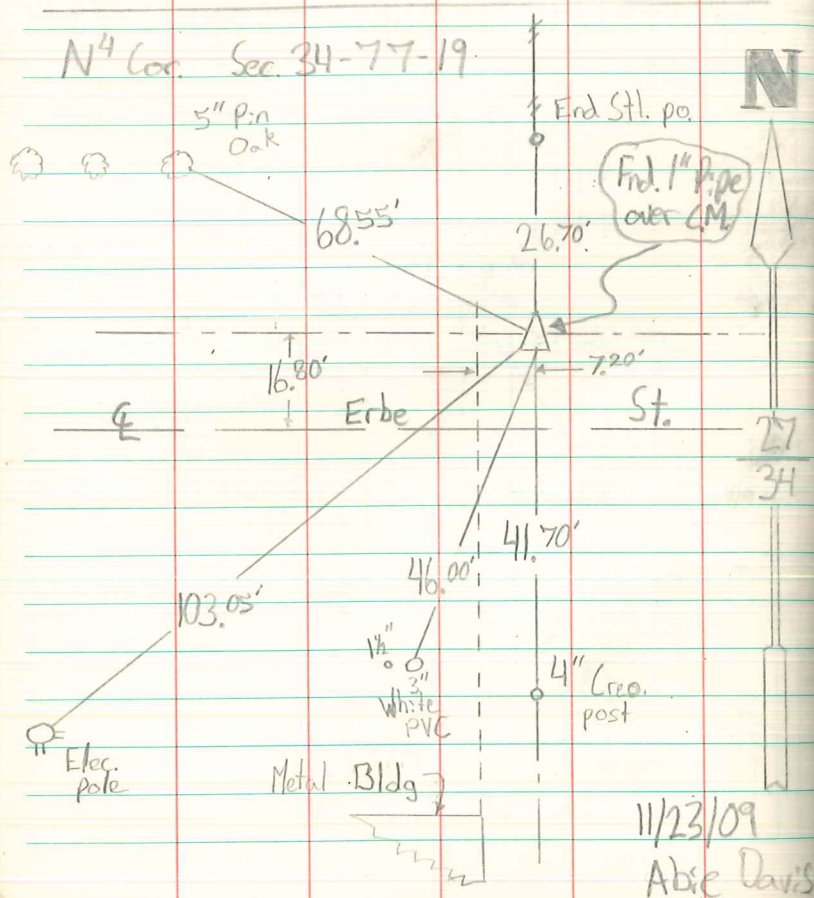 N⁴ Cor. Sec. 34-77-19
N
5" Pin
Oak
End Stl. po.
Fnd. 1" Pipe
over C.M.
68.55'
26.70'
16.80'
7.20'
℄ Erbe St.
27
34
41.70'
46.00'
103.05'
1½"
3"
White
PVC
4" Creo.
post
Elec.
pole
Metal Bldg
11/23/09
Abie Davis